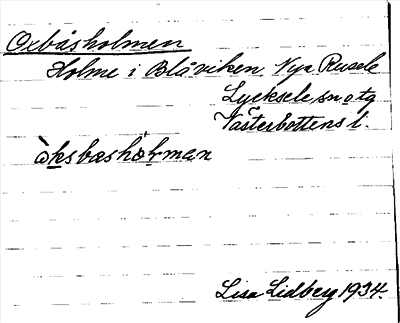 Oxbåsholmen
Holme i Blåviken, Nya Rusele
Lycksele sn o tg
Västerbottens l.
ò̀ksbasholman
Lisa Lidberg 1934.